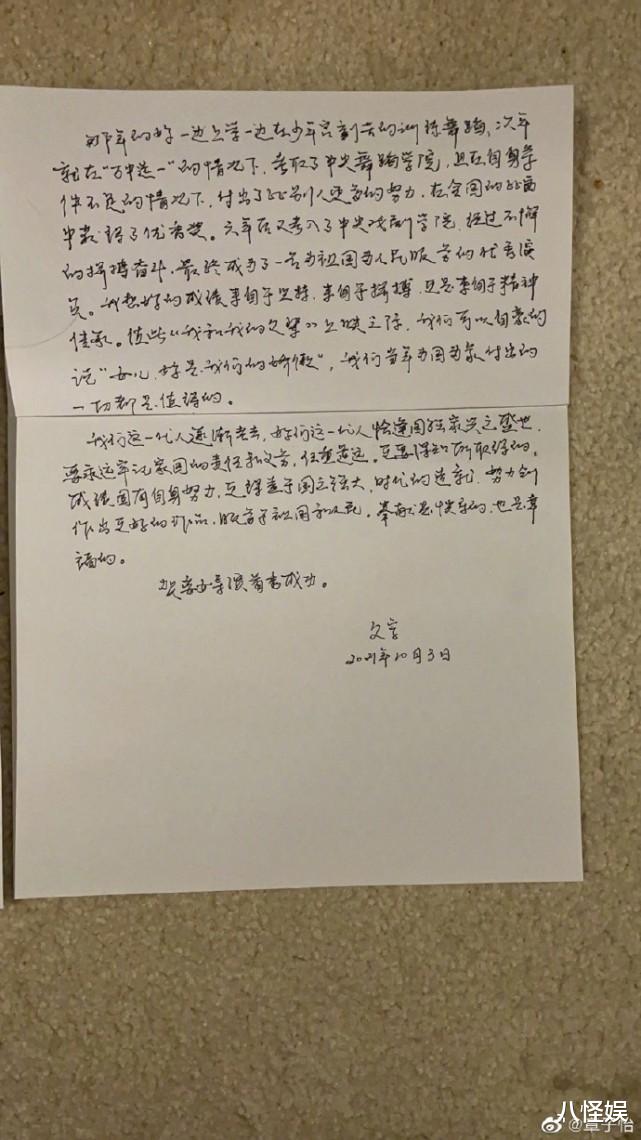 那年的你一边上学一边在少年宫刻苦的训练舞蹈、次年
就在“百中选一”的情况下，考取了中央舞蹈学院，且在自身条
件不足的情况下，付出了比别人更多的努力，在全国的比赛
中获得了优秀奖。六年后又考入了中央戏剧学院，经过不懈
的拼搏奋斗，最终成为了一名为祖国为人民服务的优秀演
员。我想好的成绩来自于坚持，来自于拼搏，更是来自于精神
传承。值此《我和我的父辈》上映之际，我们可以自豪的
说“女儿，你是我们的骄傲”，我们当年为国为家付出的
一切都是值得的。
我们这一代人逐渐老去，你们这一代人恰逢国强家兴之盛世，
要永远牢记家国的责任和义务，任重道远。更要深知所取得的
成绩固有自身努力，更得益于国之强大，时代的造就，努力创
作出更好的作品，服务于祖国和人民。奉献是快乐的，也是幸
福的。
祝章女导演首秀成功。
父字
2021年10月3日
八怪娱
@章子怡